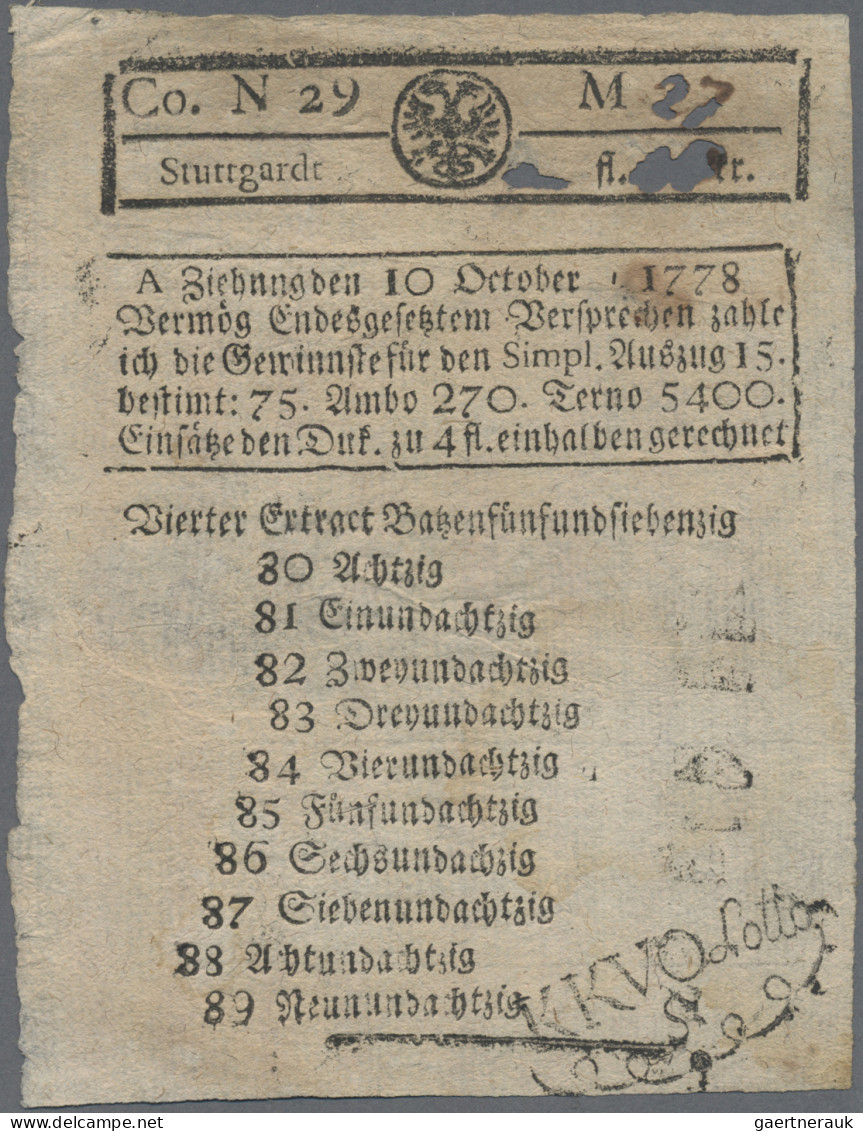 Co. N 29 M 27
Stuttgardt fl. kr.
A Ziehung den 10 October 1778
Vermög Endesgesetztem Versprechen zahle
ich die Gewinnste für den Simpl. Auszug 15.
bestimt: 75. Ambo 270. Terno 5400.
Einsätze den Duk. zu 4 fl. einhalben gerechnet
Vierter Extract Batzen fünfundsiebenzig
80 Achtzig
81 Einundachtzig
82 Zweyundachtzig
83 Dreyundachtzig
84 Vierundachtzig
85 Fünfundachtzig
86 Sechsundachzig
87 Siebenundachtzig
88 Achtundachtzig
89 Neunundachtzig
KKVO Lotto
gaertnerauk